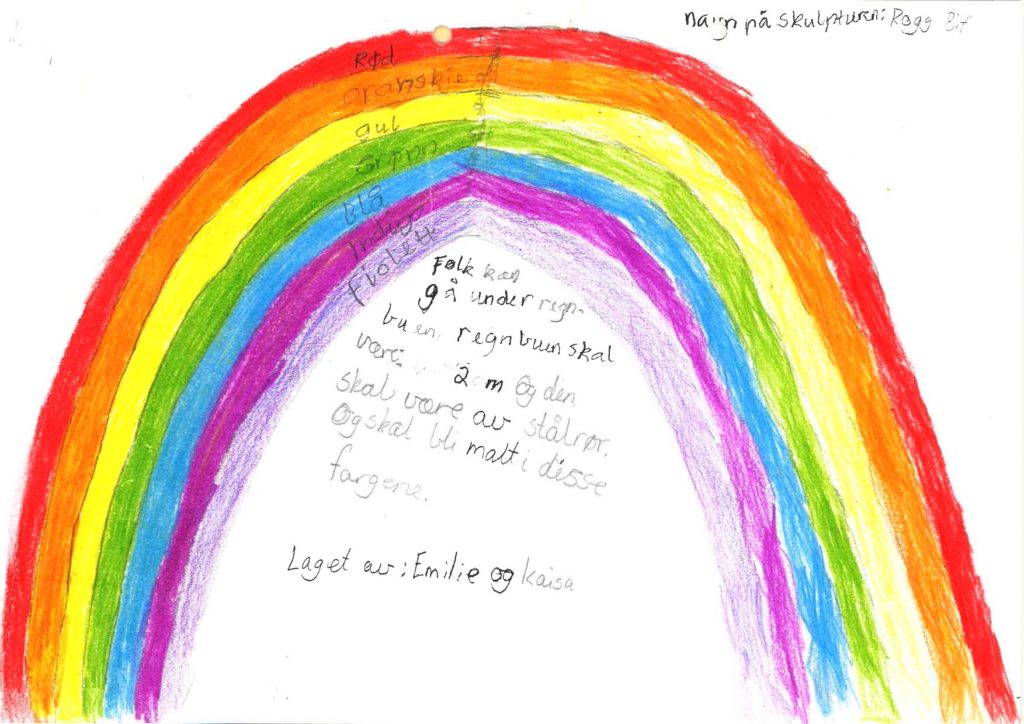 navn på skulpturen: Regg Bif
Rød
oranskje
gul
grønn
blå
Indigo
Fiolett
Folk kan
gå under regn-
buen, regnbuen skal
være 2 m Og den
skal være av stålrør.
Og skal bli malt i disse
fargene.
Laget av: Emilie og kaisa